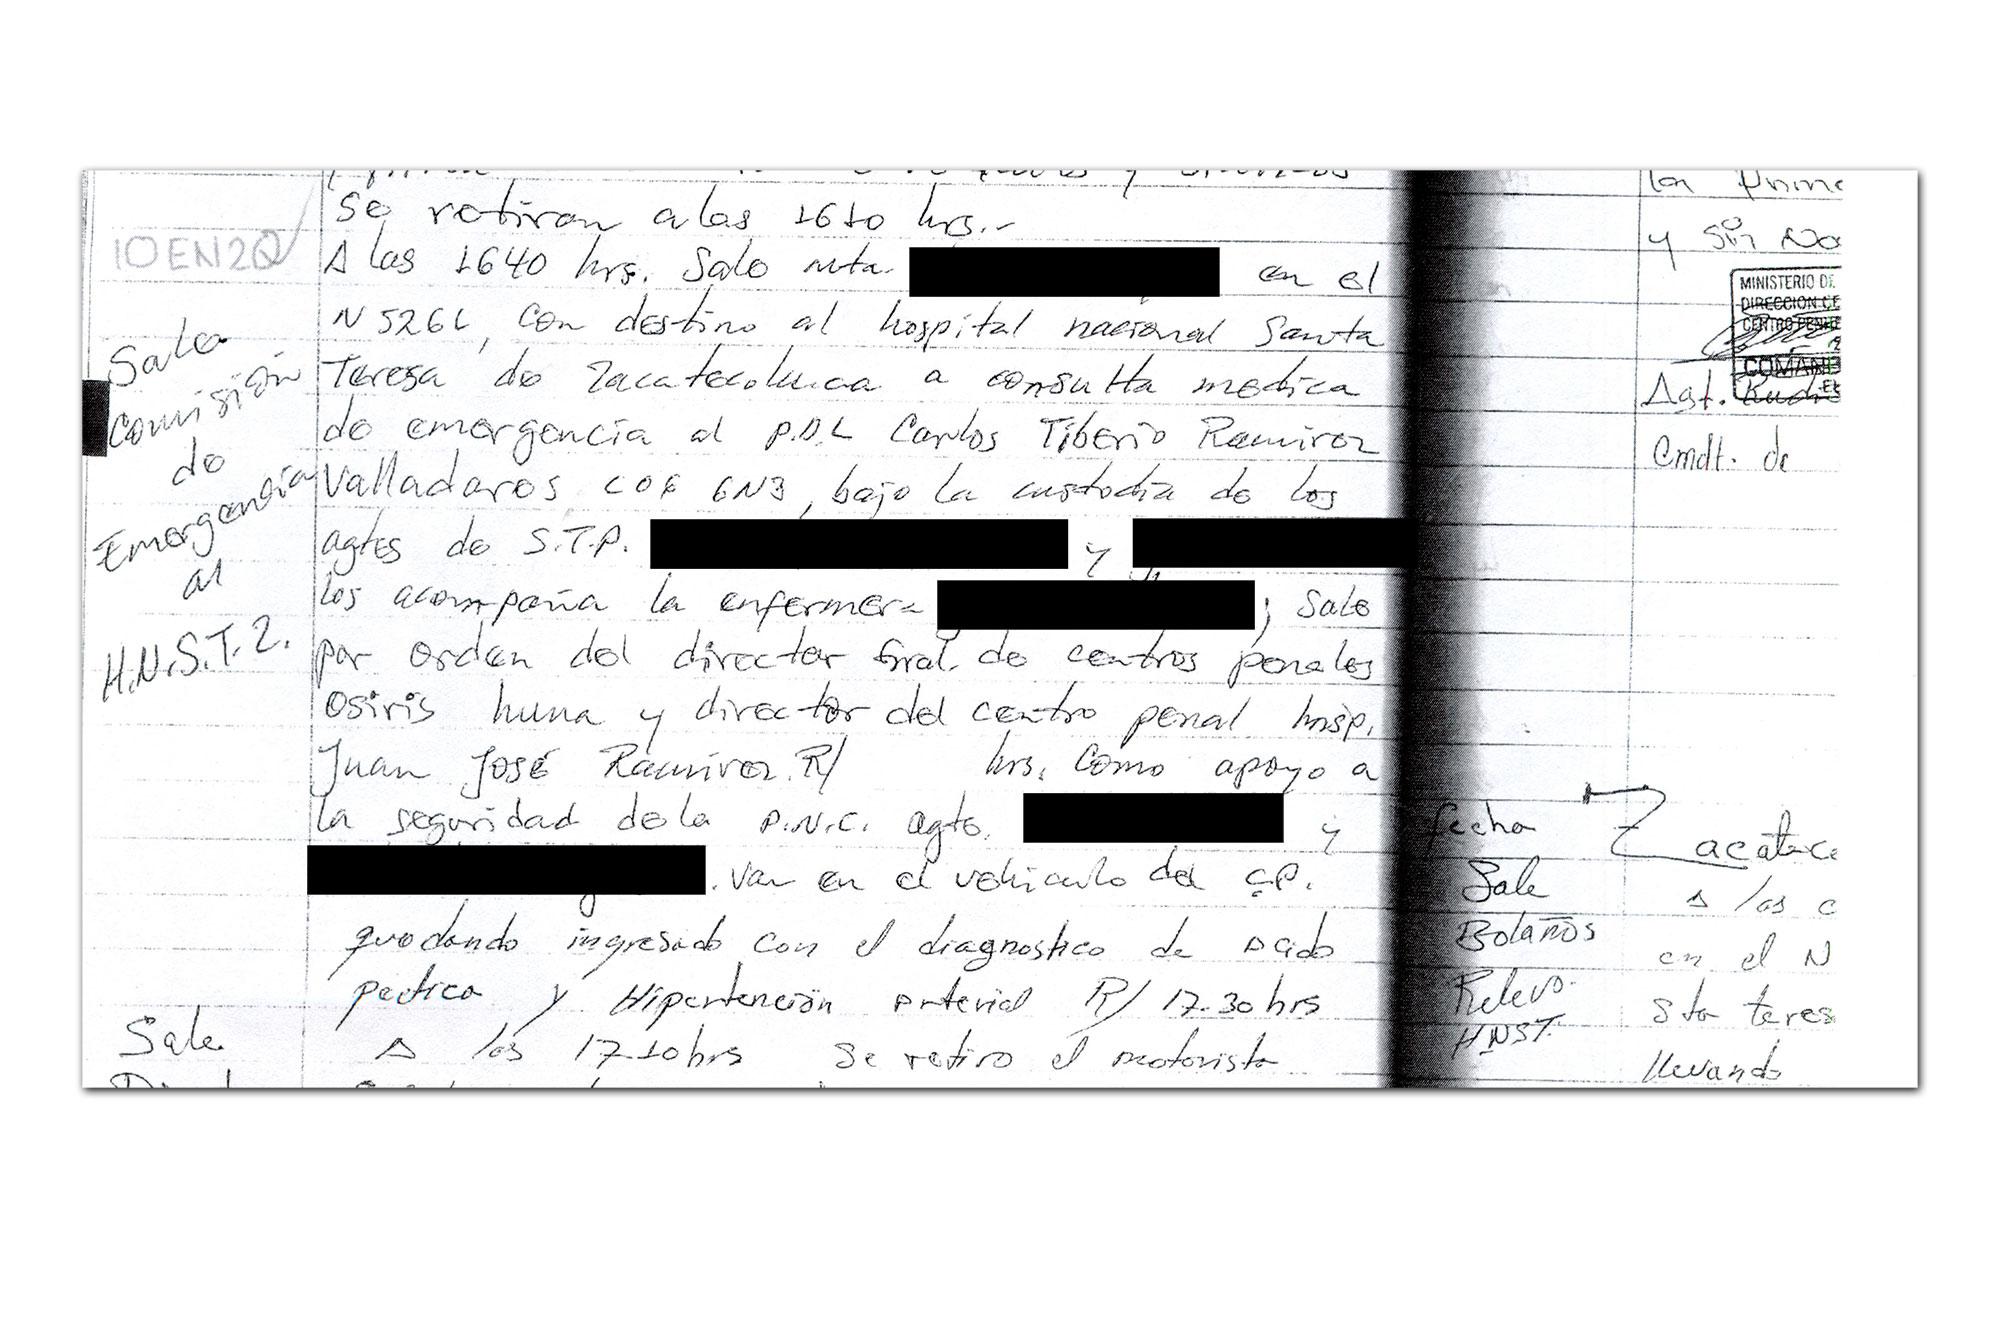 Se retiran a las 1610 hrs.-
10 EN 20
A las 1640 hrs. Sale ruta en el
N5266, con destino al hospital nacional Santa
Teresa de Zacatecoluca a consulta medica
de emergencia al P.D.L Carlos Tiberio Ramirez
Valladares 6N3, bajo la custodia de los
agtes de S.T.P. y
los acompaña la enfermera ; Sale
por orden del director Gral. de centros penales
Osiris luna y director del centro penal Insp.
Juan José Ramirez. R/ hrs. Como apoyo a
la seguridad de la P.N.C. agte. y
. Van en el vehiculo del C.P.
quedando ingresado con el diagnostico de Acido
pectica y Hipertención arterial R/ 17.30 hrs
A las 17.10 hrs Se retiro el motorista
Sale
Comisión
de
Emergencia
al
H.N.S.T.Z.
Sale
la Prime
y Sin No
MINISTERIO DE
DIRECCION GE
CENTRO PENITE
COMAN
Agt.
Cmdt. de
fecha
Zacateco
Sale
Bolaños
Relevo.
HNST.
A las
en el N
Sta teres
llevando